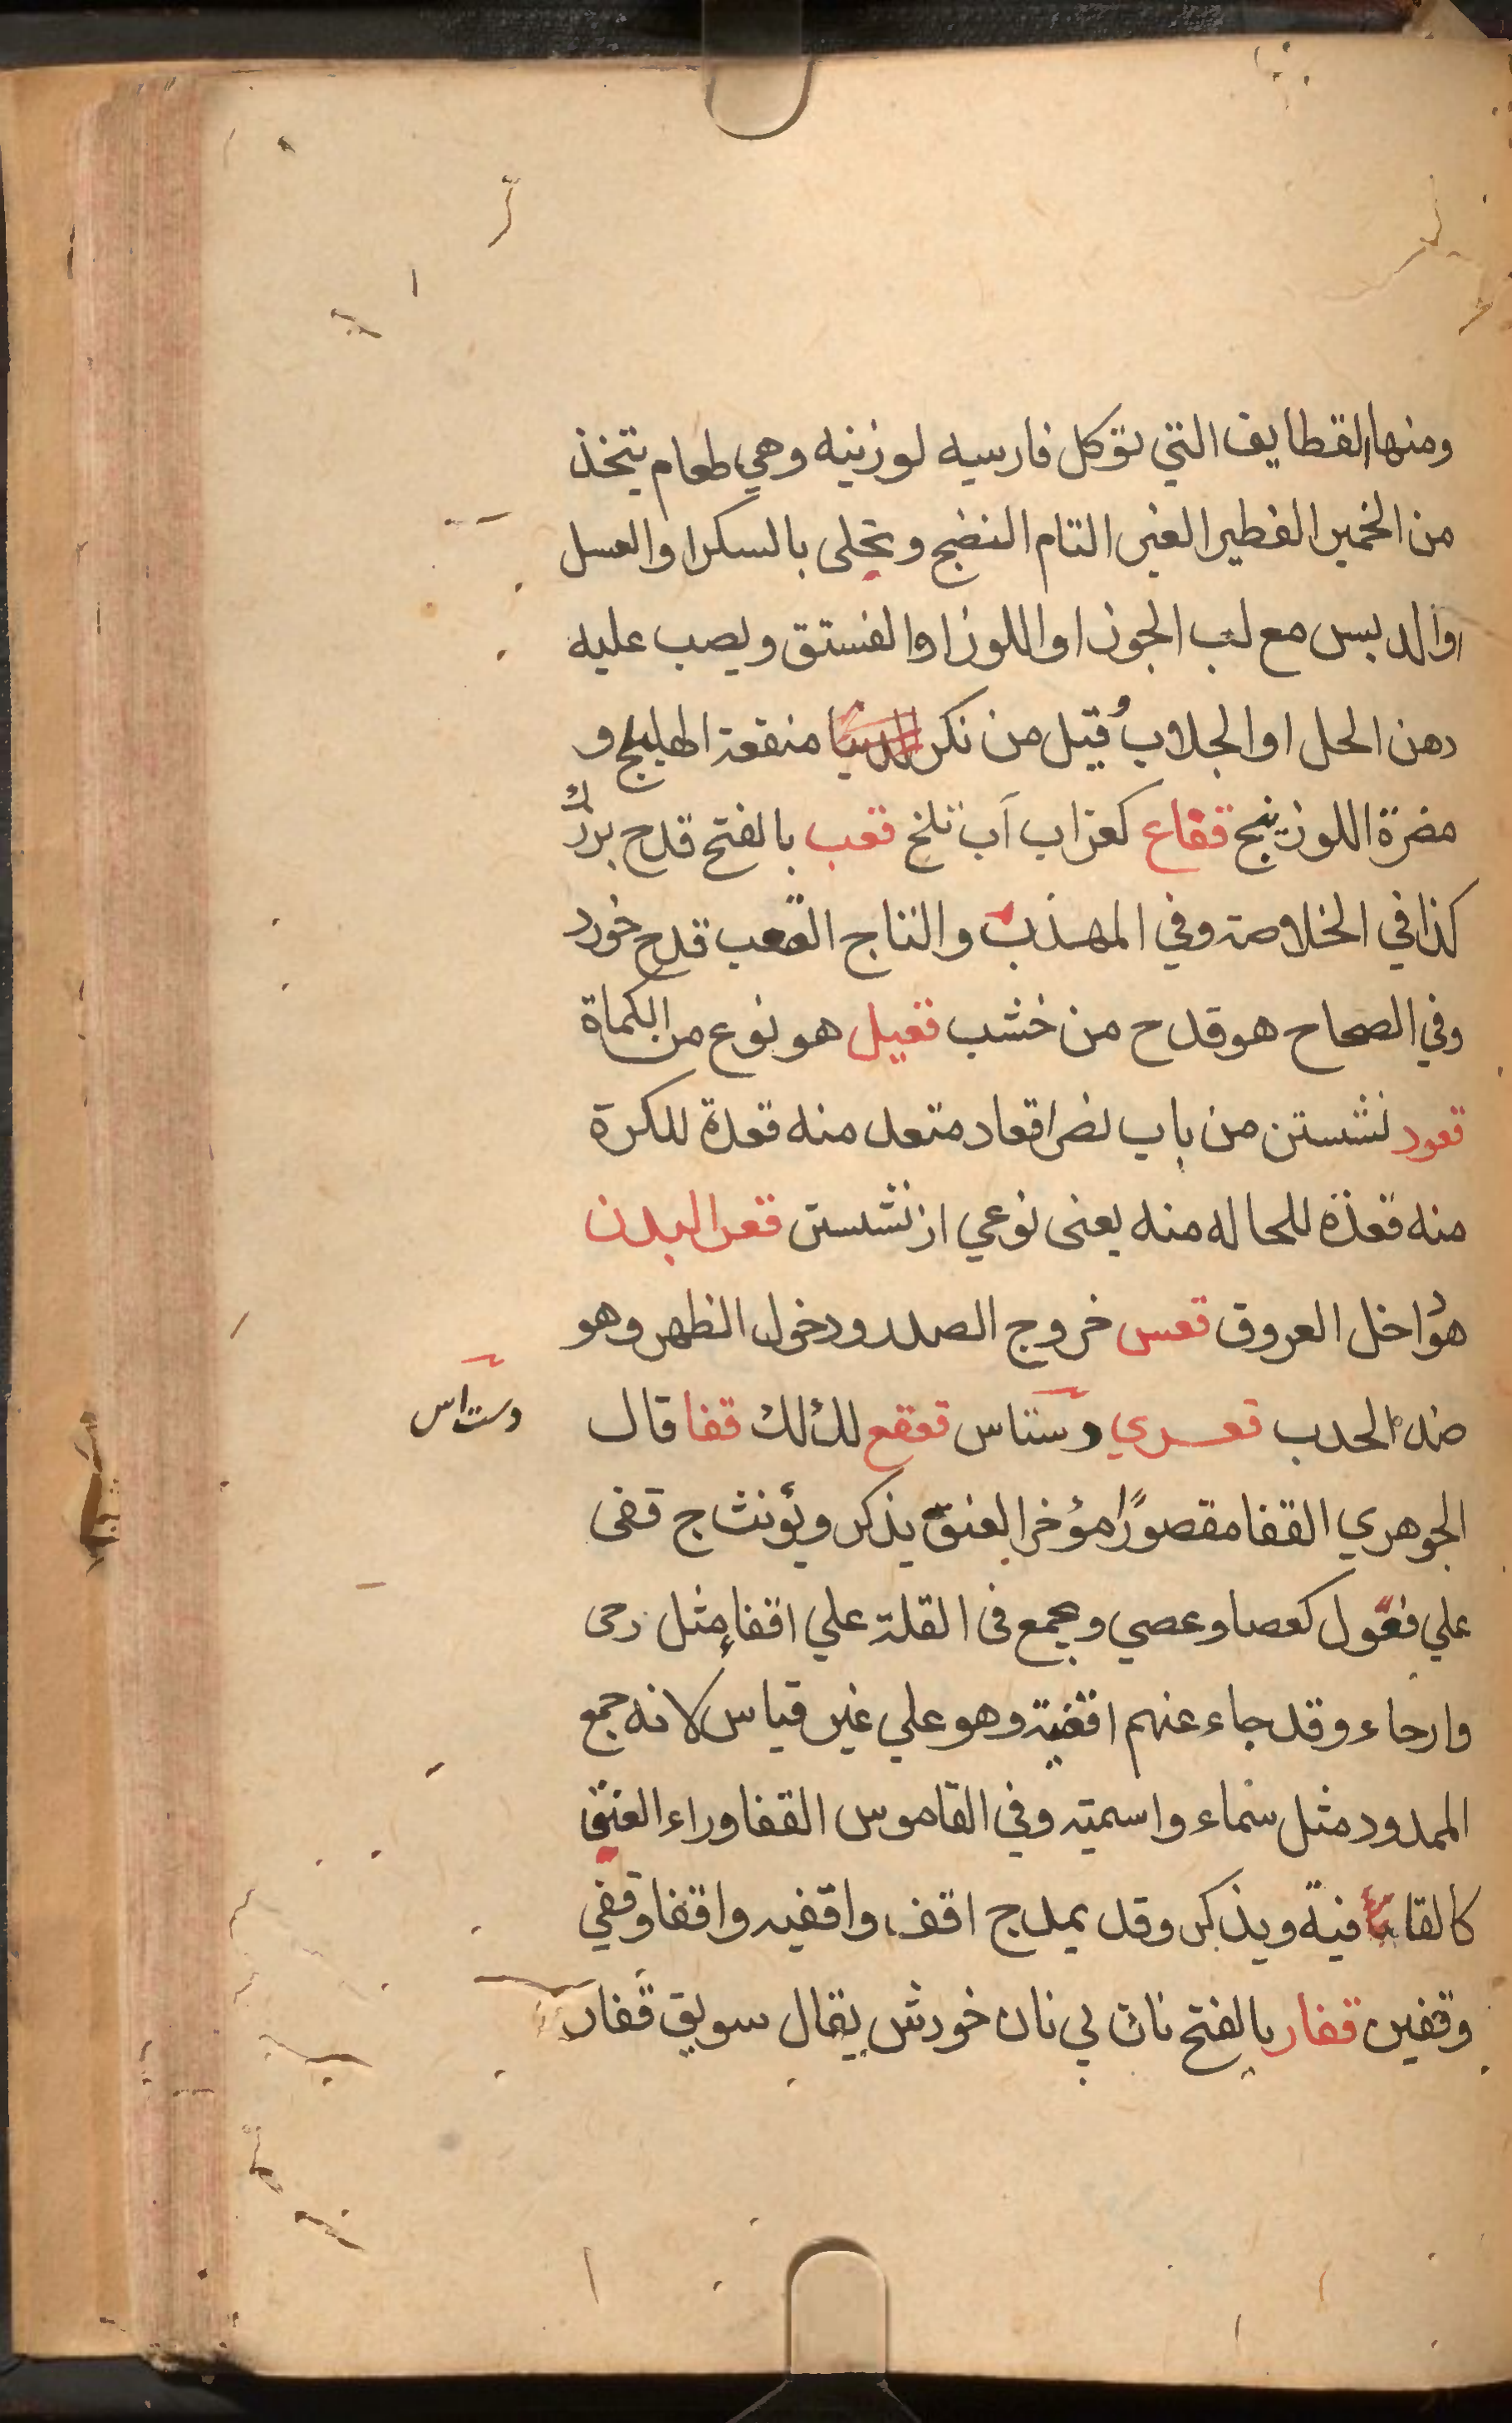 ومنها القطايف التي توكل فارسيه لوزينه وهي طعام يتخذ
من الخمير الفطير الغير التام النضج وتحلى بالسكر او العسل
او الدبس مع لب الجوز او اللوز او الفستق ويصب عليه
دهن الحل او الجلاب قيل من نكر منقعة الهليلج و
مضرة اللوزينج قفاع كعزاب آب تلخ قعب بالفتح قدح بزرك
كذا في الخلاصة وفي المهذب والتاج القعب قدح خورد
وفي الصحاح هو قدح من خشب قعيل هو نوع من الكماة
قعود نشستن من باب نصر اقعاد متعد منه قعدة للكرة
منه قعدة للحاله منه يعنى نوعي از نشستن قعر البدن
هو داخل العروق قعس خروج الصدر ودخول الظهر وهو
ضد الحدب قعسري دستاس قعقع لكلك قفا قال
دست اس
الجوهري القفا مقصورًا مؤخر العنق يذكر ويؤنث ج قفى
علي فعول كعصا وعصي ويجمع فى القلة علي اقفاء مثل رحى
وارحاء وقد جاء عنهم اقفية وهو علي غير قياس لانه جمع
الممدود مثل سماء واسمية وفي القاموس القفا وراء العنق
كالقافية ويذكر وقد يمد ج اقف واقفيه واقفا وقفي
وقفين قفار بالفتح نان بي نان خورش يقال سويق قفار